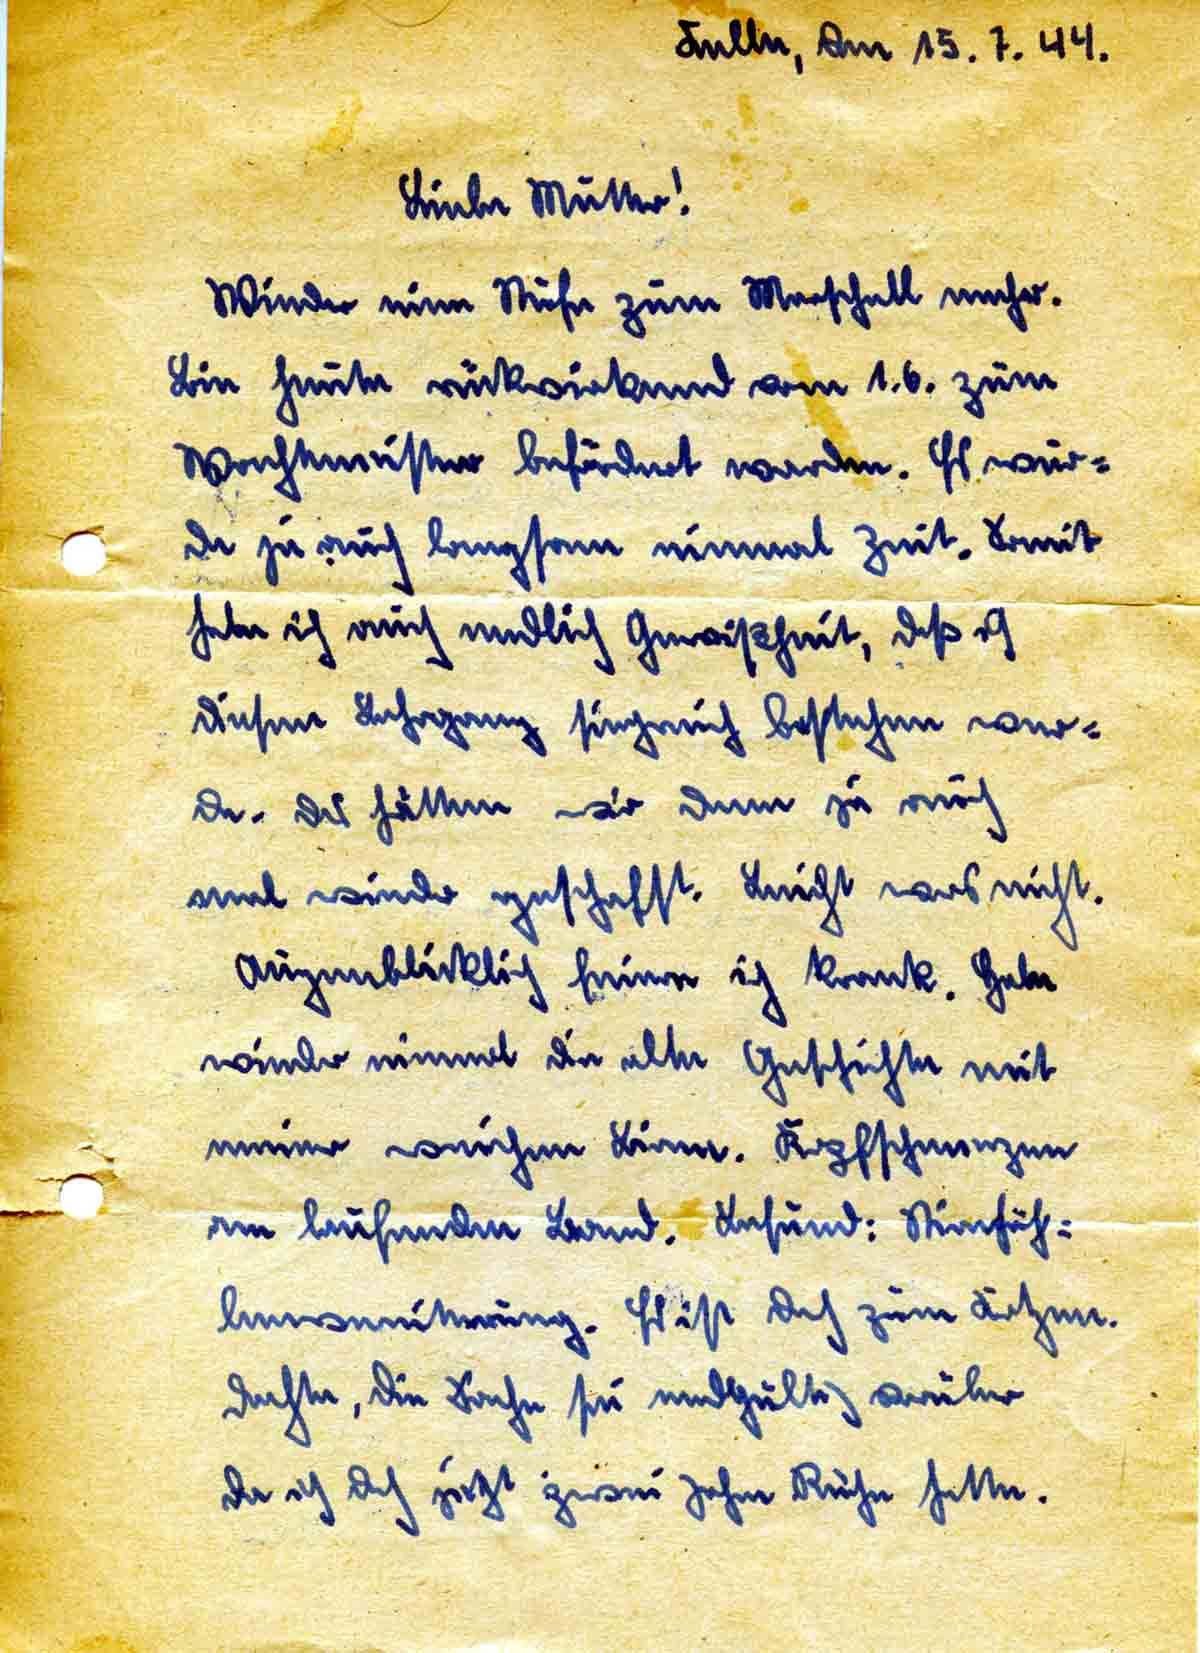 Celle, den 15. 7. 44.
Liebe Mutter!
Wieder eine Stufe zum Marschall mehr.
Bin heute rückwirkend vom 1.6. zum
Wachtmeister befördert worden. Es wur=
de ja auch langsam einmal Zeit. Somit
habe ich auch endlich Gewißheit, daß ich
diesen Lehrgang siegreich bestehen wer=
de. Das hätten wir denn ja auch
mal wieder geschafft. Leicht wars nicht.
Augenblicklich feiere ich krank. Habe
wieder einmal die alte Geschichte mit
meiner weichen Birne. Kopfschmerzen
am laufenden Band. Befund: Stirnhöh=
lenvereiterung. Es ist doch zum Kotzen.
Dachte, die Sache sei endgültig vorüber
da ich doch jetzt zwei Jahre Ruhe hatte.